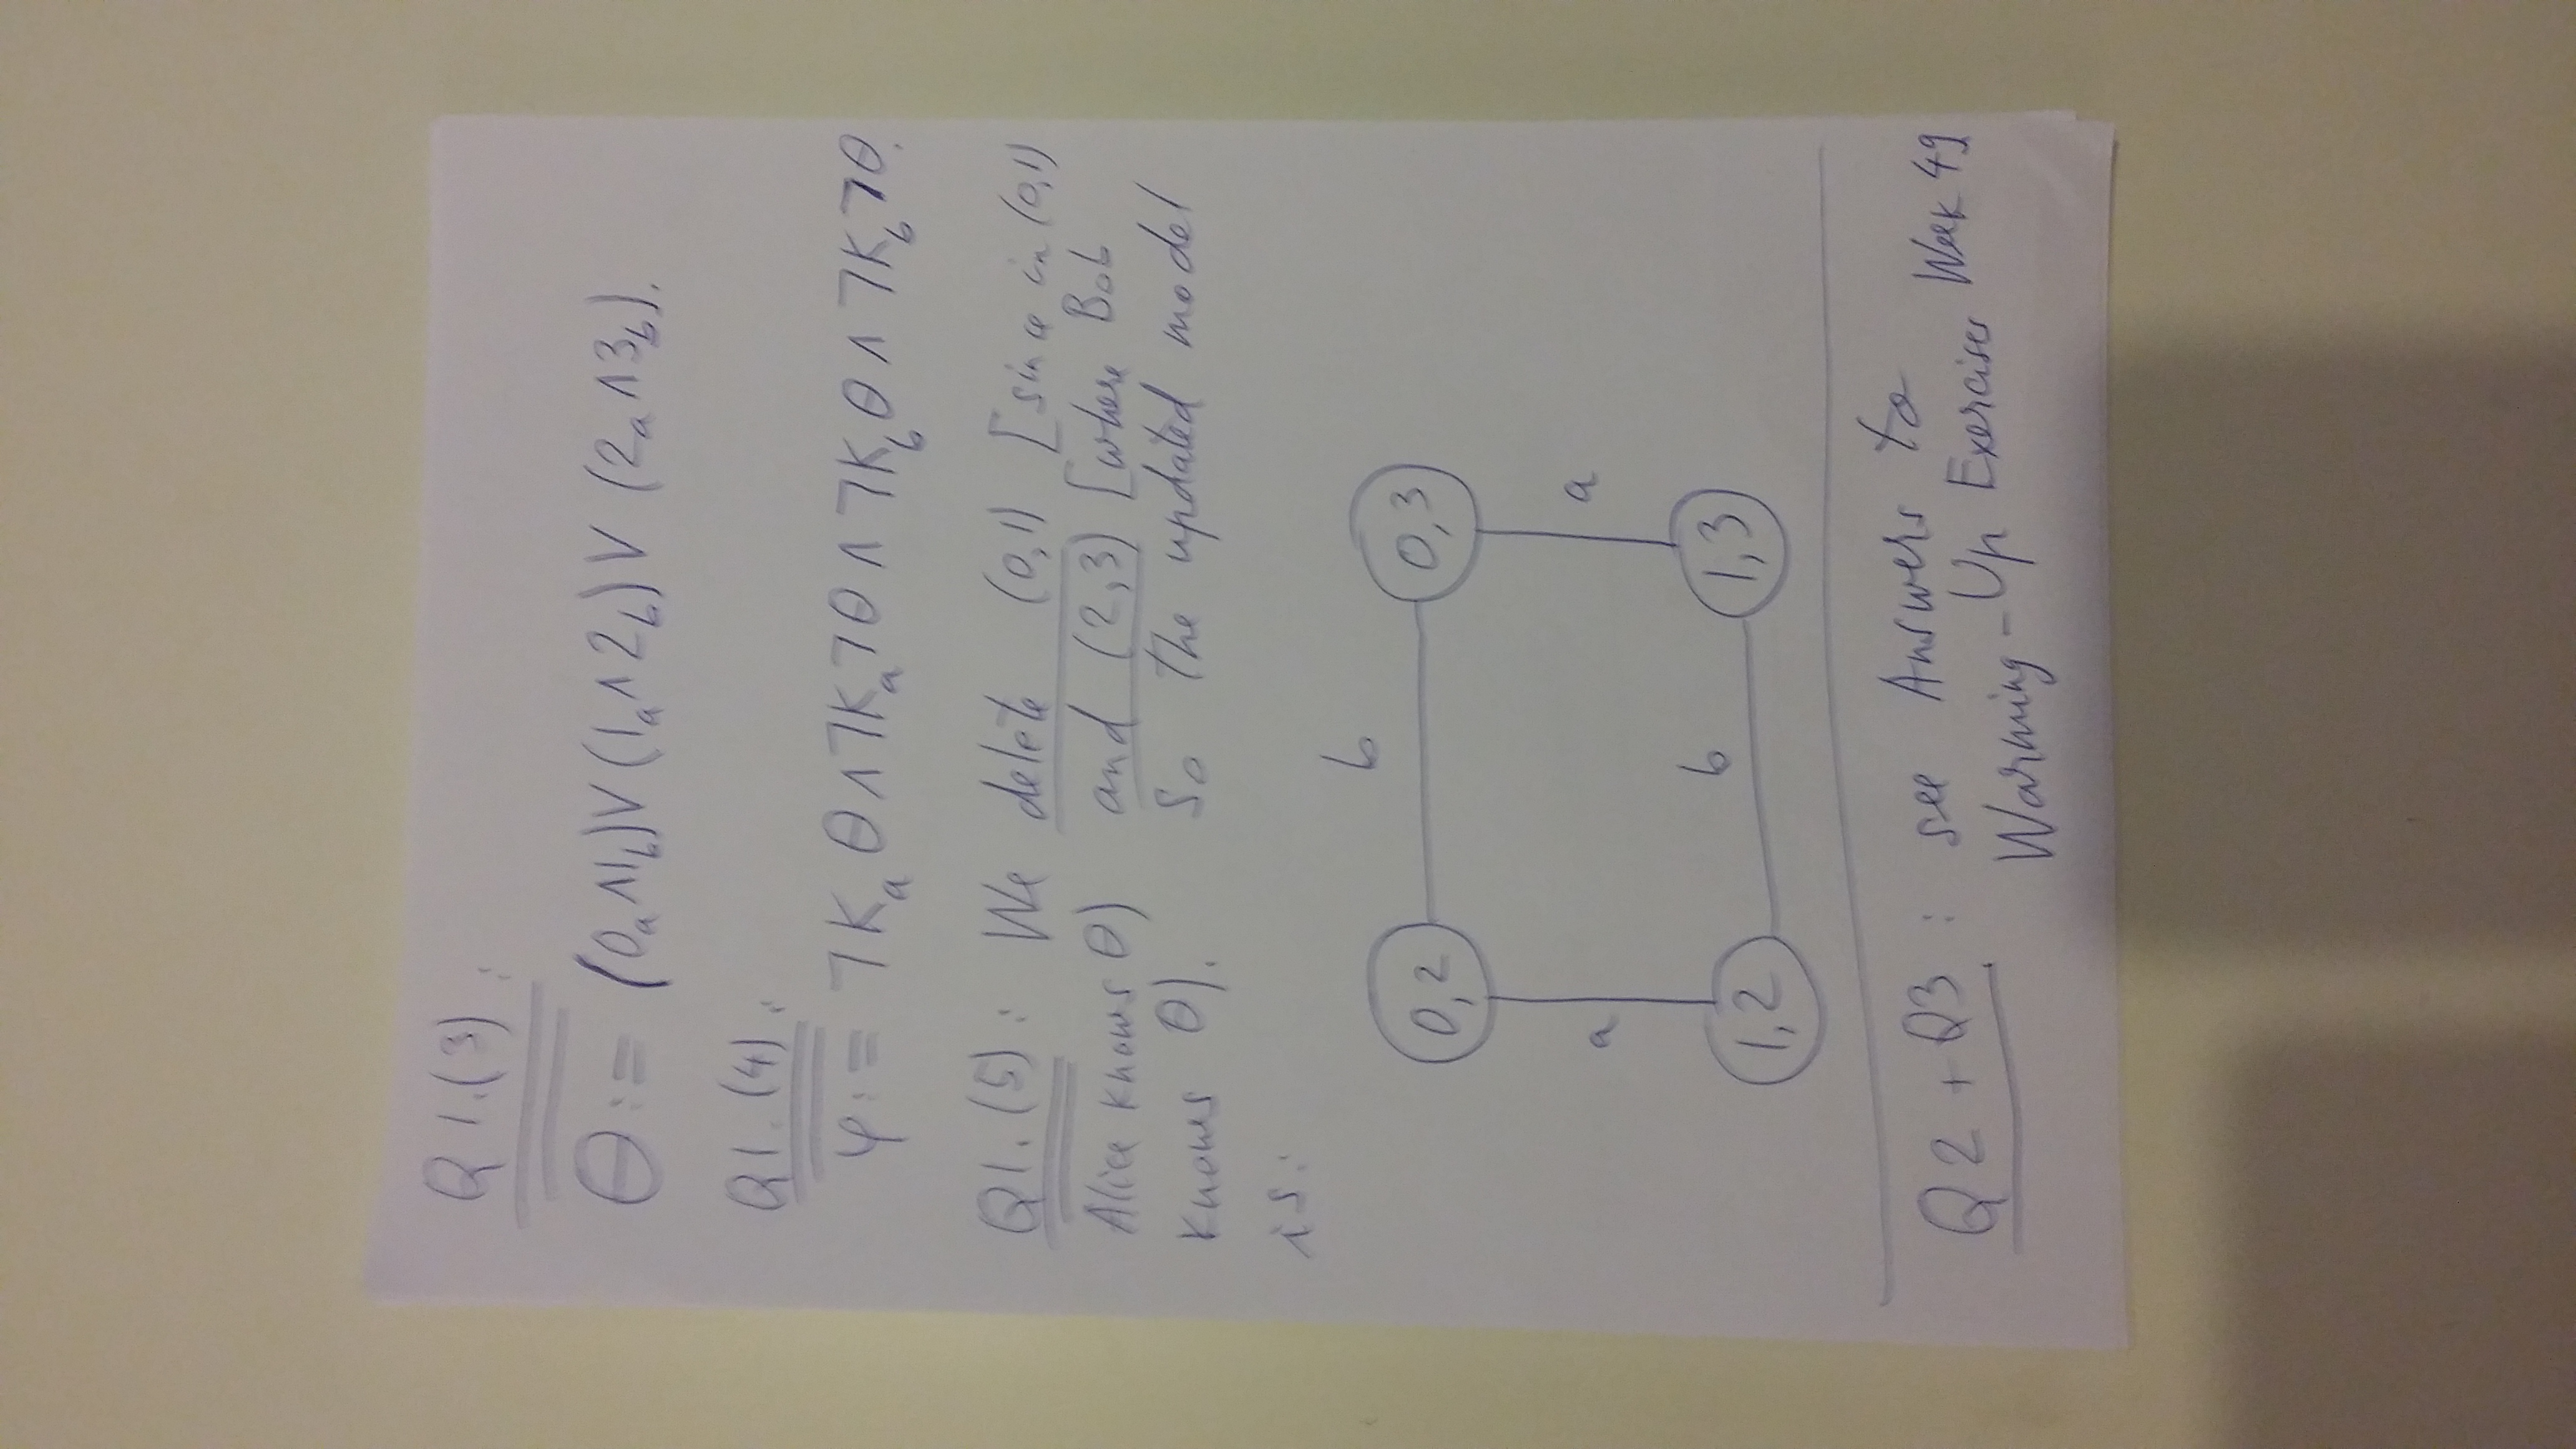 Q1.(3):
θ := (0ₐ∧1_b)∨(1ₐ∧2_b)∨(2ₐ∧3_b).
Q1.(4):
φ := ¬Kₐθ∧¬Kₐ¬θ∧¬K_bθ∧¬K_b¬θ.
Q1.(5): We delete (0,1) [since in (0,1)
Alice knows θ) and (2,3) [where Bob
knows θ). So the updated model
is:
b
0,2 0,3
a a
b
1,2 1,3
Q2+Q3: see Answers to
Warming-Up Exercises Week 49